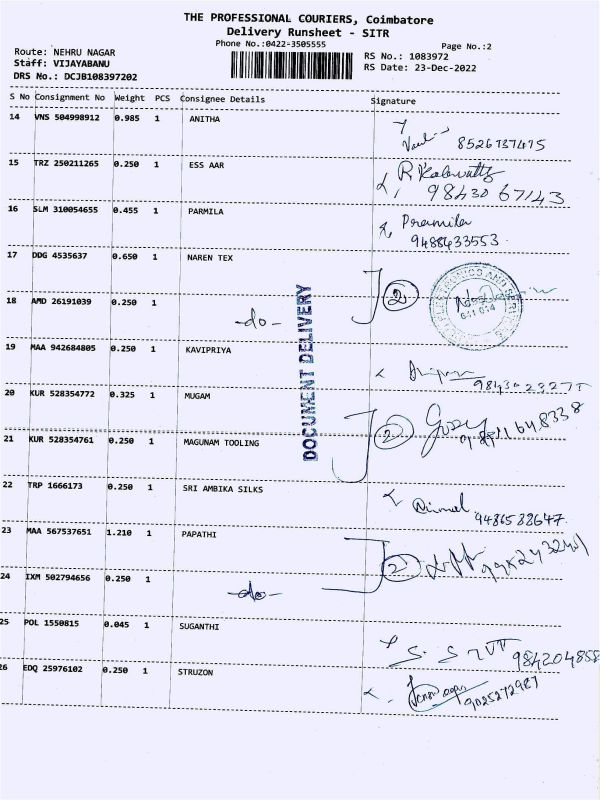 THE PROFESSIONAL COURIERS, Coimbatore
Delivery Runsheet - SITR
Phone No.:0422-3505555
Page No.:2
Route: NEHRU NAGAR
RS No.: 1083972
Staff: VIJAYABANU
RS Date: 23-Dec-2022
DRS No.: DCJB108397202
S No Consignment No Weight PCS Consignee Details Signature
14 VNS 504998912 0.985 1 ANITHA
8526737475
15 TRZ 250211265 0.250 1 ESS AAR
98430 67143
16 SLM 310054655 0.455 1 PARMILA
Pramila
9488433553
17 DDG 4535637 0.650 1 NAREN TEX
2
18 AMD 26191039 0.250 1 -do-
641 014
DOCUMENT DELIVERY
19 MAA 942684805 0.250 1 KAVIPRIYA
20 KUR 528354772 0.325 1 MUGAM
2
21 KUR 528354761 0.250 1 MAGUNAM TOOLING
22 TRP 1666173 0.250 1 SRI AMBIKA SILKS
9486582647
23 MAA 567537651 1.210 1 PAPATHI
2
24 IXM 502794656 0.250 1 -do-
25 POL 1550815 0.045 1 SUGANTHI
984204858
26 EDQ 25976102 0.250 1 STRUZON
9025272987